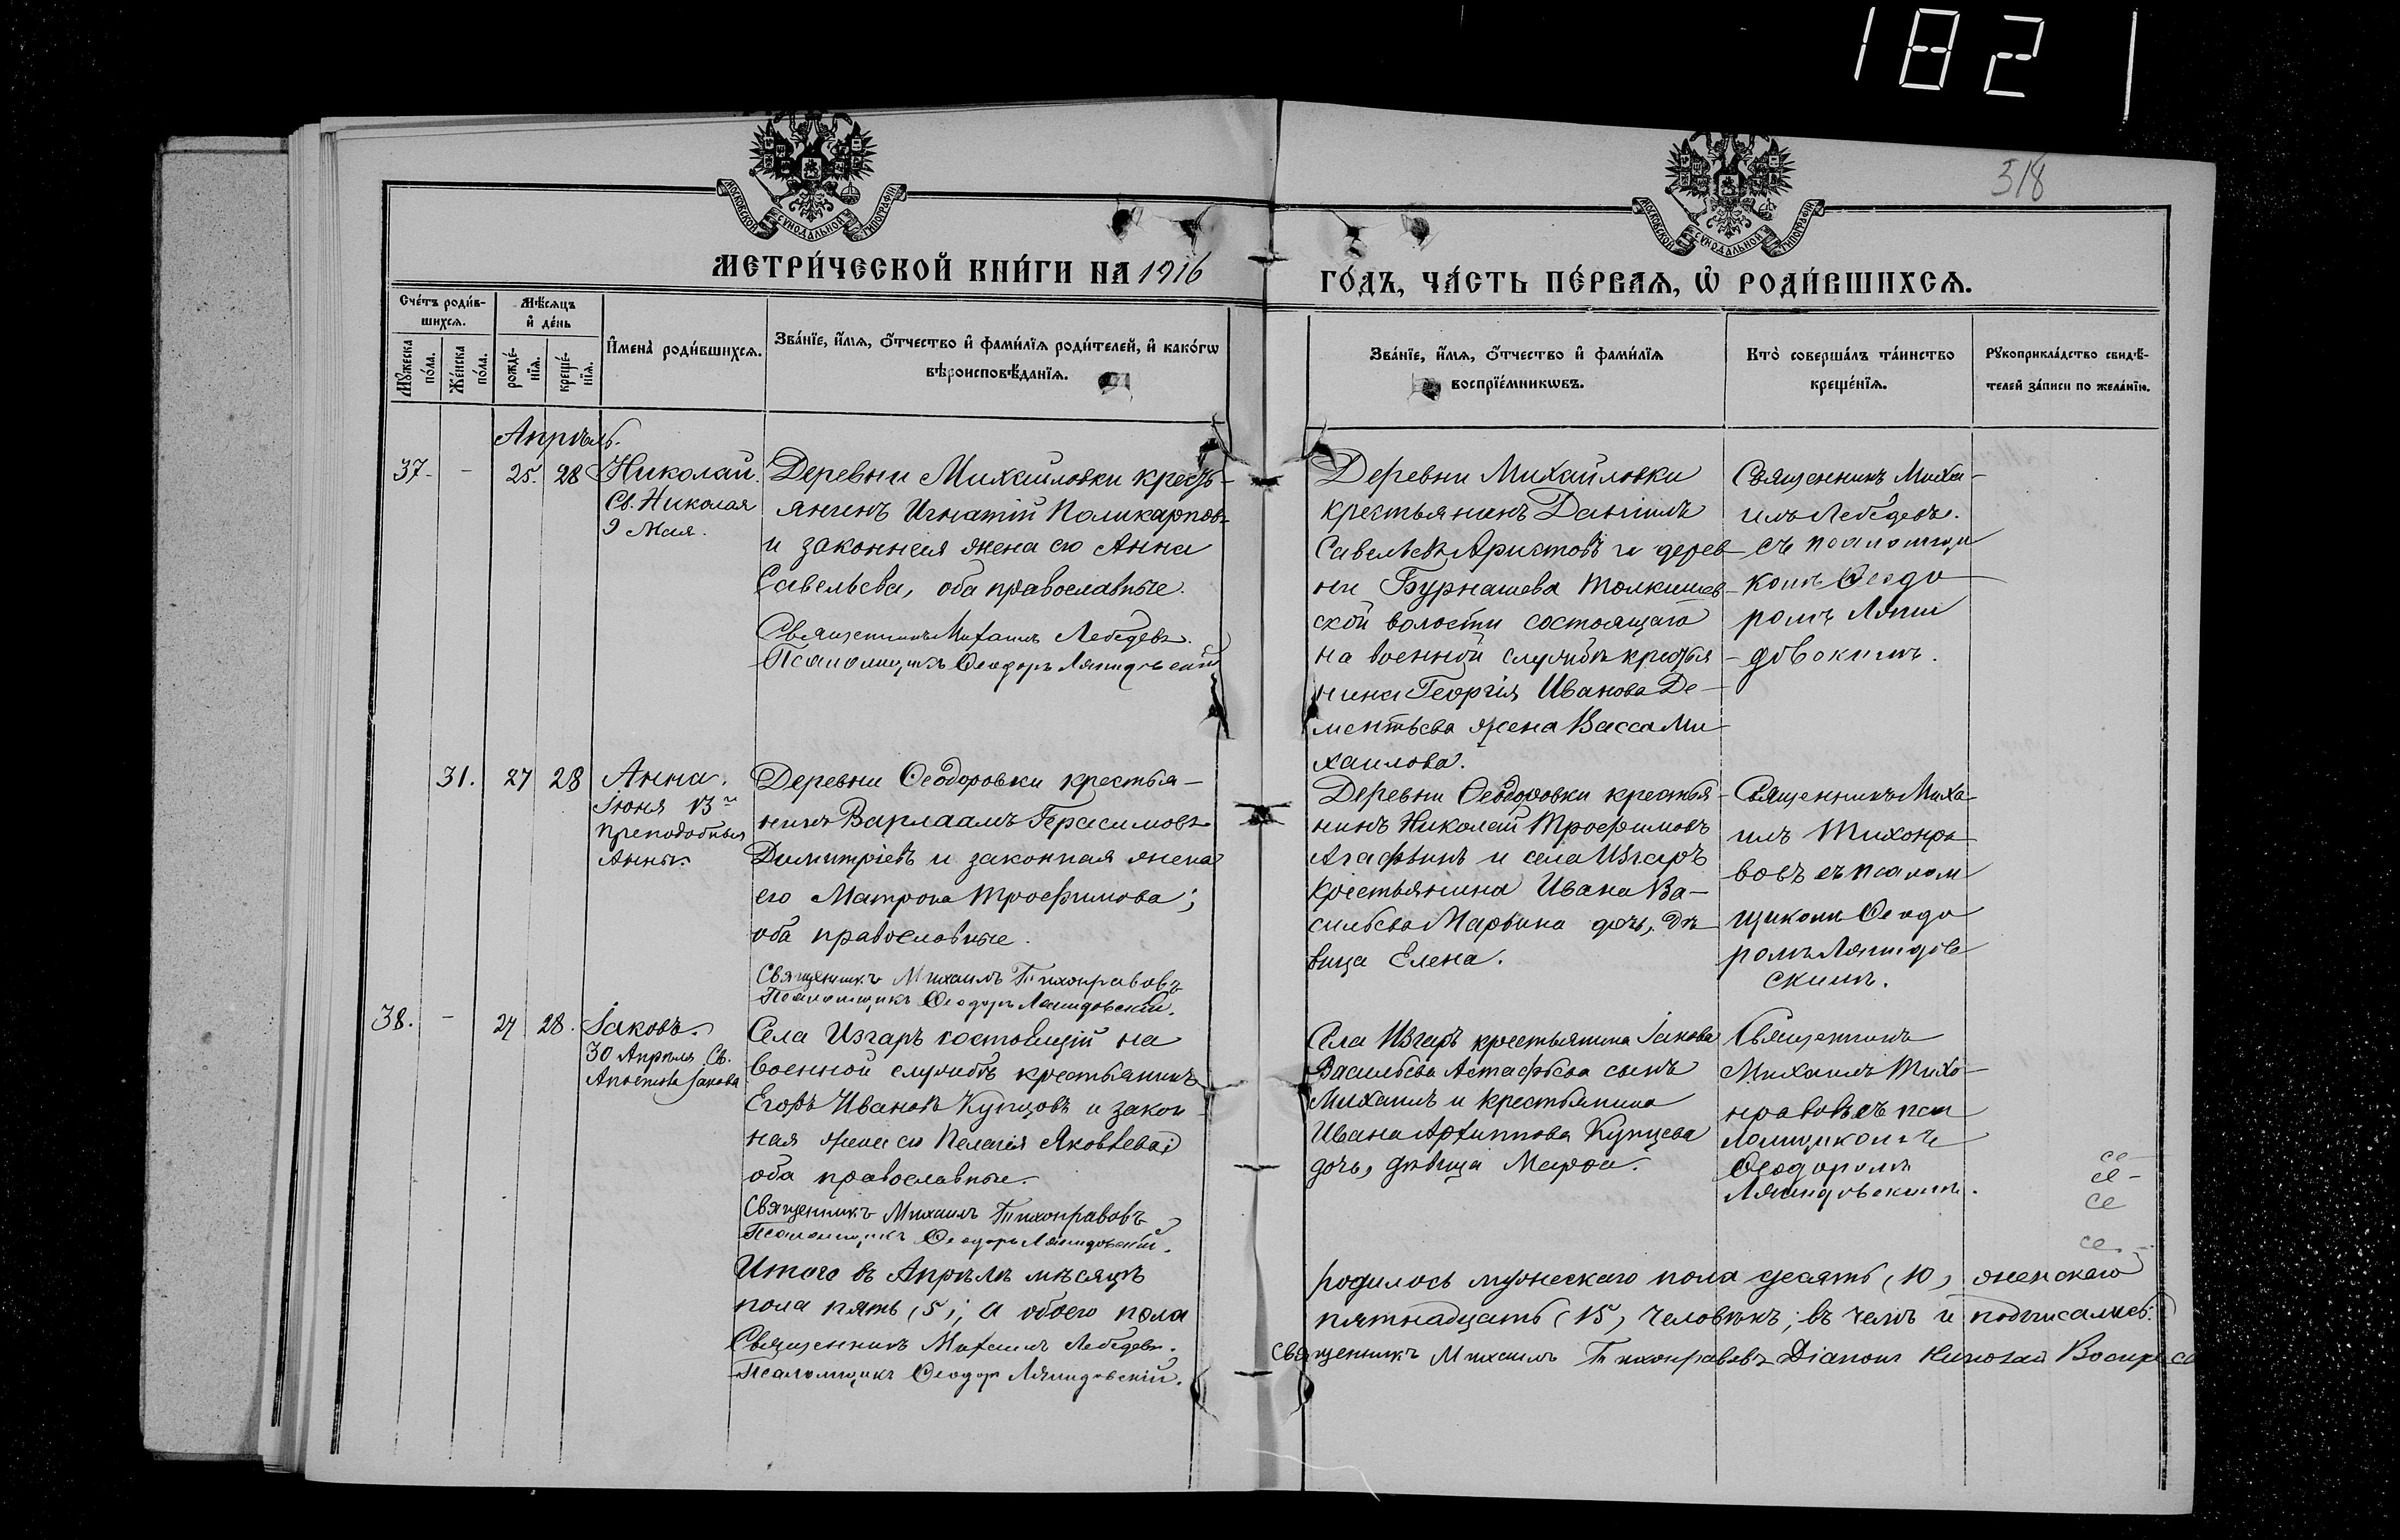 1821
318
МОСКОВСКОЙ СУНОДАЛЬНОЙ ТИПОГРАФІИ
МОСКОВСКОЙ СУНОДАЛЬНОЙ ТИПОГРАФІИ
МЕТРИ́ЧЕСКОЙ КНИ́ГИ НА 1916
ГО́ДЪ, ЧА́СТЬ ПЕ́РВАѦ, Ѡ҆ РОДИ́ВШИХСѦ.
Сче́тъ роди́в-
шихсѧ.
Мѣ́сѧцъ
и҆ де́нь
Мꙋ́жеска
по́ла.
Же́нска
по́ла.
рожде́-
нїѧ.
креще́-
нїѧ.
И҆мена̀ роди́вшихсѧ.
Зва́нїе, и҆́мѧ, ѻ҆́тчество и҆ фами́лїѧ роди́телей, и҆ како́гѡ
вѣроисповѣ́данїѧ.
Зва́нїе, и҆́мѧ, ѻ҆́тчество и҆ фами́лїѧ
воспрїе́мникѡвъ.
Кто̀ соверша́лъ та́инство
креще́нїѧ.
Рꙋкоприкла́дство свидѣ́-
телей за́писи по жела́нїю.
Апрѣль.
37. - 25. 28 Николай.
Св. Николая
9 Мая.
Деревни Михайловки кресть-
янинъ Игнатій Поликарповъ
и законная жена его Анна
Савельева, оба православные.
Священникъ Михаилъ Лебедевъ.
Псаломщикъ Ѳеодоръ Ляпидовскій
Деревни Михайловки
крестьянинъ Даніилъ
Савельевъ Аристовъ и дерев
ни Бурнашева Толкишев-
ской волости состоящаго
на военной службѣ крестья-
нина Георгія Иванова Де-
ментьева жена Васса Ми
хаилова.
Священникъ Миха-
илъ Лебедевъ.
съ псаломщи
комъ Ѳеодо
ромъ Ляпи
довскимъ.
31. 27 28 Анна.
Іюня 13го
преподобныя
Анны.
Деревни Ѳеодоровки крестья-
нинъ Варлаамъ Герасимовъ
Димитріевъ и законная жена
его Матрона Трофимова;
оба православные.
Священникъ Михаилъ Тихонравовъ
Псаломщикъ Ѳеодоръ Ляпидовскій.
Деревни Ѳеодоровки крестья-
нинъ Николай Трофимовъ
Агафинъ и села Изгаръ
крестьянина Ивана Ва-
сильева Марвина дочь, дѣ
вица Елена.
Священникъ Миха-
илъ Тихонра
вовъ съ псалом
щикомъ Ѳеодо
ромъ Ляпидов
скимъ.
38. - 27 28. Іаковъ.
30 Апрѣля Св.
Апостола Іакова
Села Изгаръ состоящій на
военной службѣ крестьянинъ
Егоръ Ивановъ Купцовъ и закон-
ная жена его Пелагія Яковлева;
оба православные.
Священникъ Михаилъ Тихонравовъ
Псаломщикъ Ѳеодоръ Ляпидовскій.
Села Изгаръ крестьянина Іакова
Васильева Астафьева сынъ
Михаилъ и крестьянина
Ивана Архиппова Купцева
дочь, дѣвица Марѳа.
Священникъ
Михаилъ Тихо-
нравовъ съ пса
ломщикомъ
Ѳеодоромъ
Ляпидовскимъ.
Итого въ Апрѣлѣ мѣсяцѣ
родилось мужескаго пола десять (10), женскаго
пола пять (5); а обоего пола
пятнадцать (15) человѣкъ; въ чемъ и подписались:
Священникъ Михаилъ Лебедевъ.
Священникъ Михаилъ Тихонравовъ Діаконъ Николай
Псаломщикъ Ѳеодоръ Ляпидовскій.